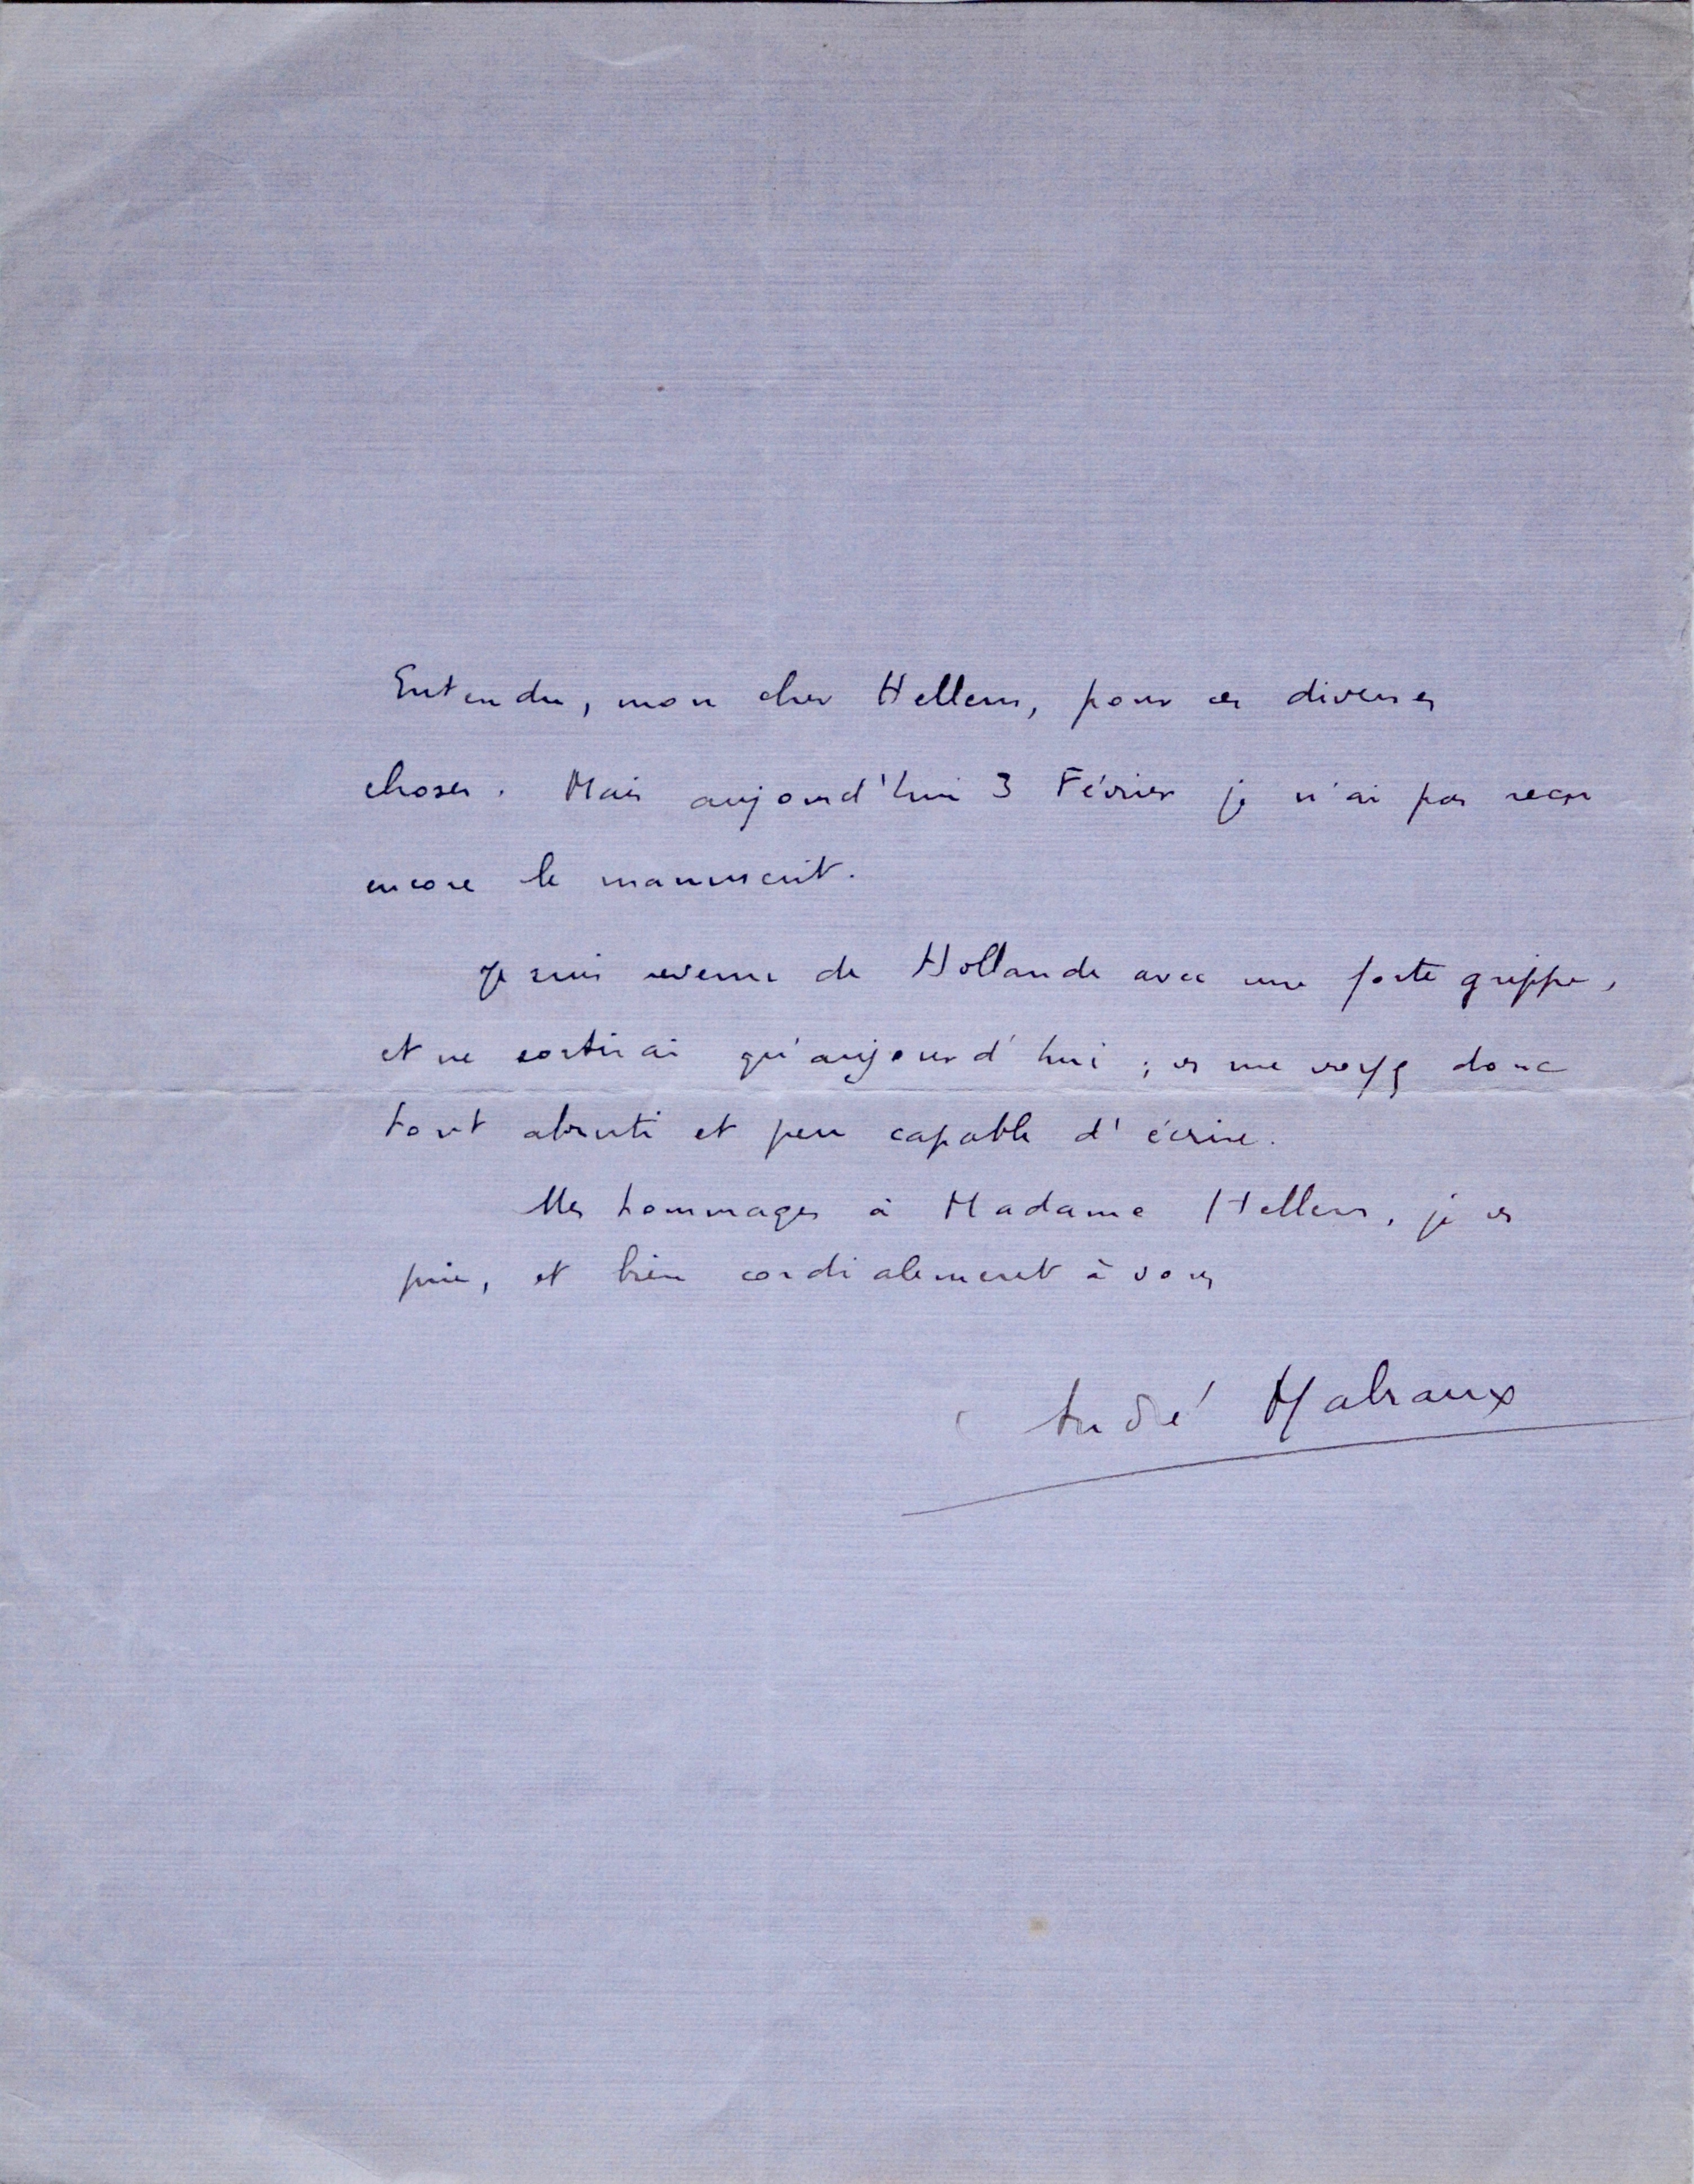 Entendu, mon cher Hellens, pour ces diverses
choses. Mais aujourd'hui 3 Février je n'ai pas reçu
encore le manuscrit.
Je suis revenu de Hollande avec une forte grippe,
et ne sortirai qu'aujourd'hui ; vs me voyez donc
tout abruti et peu capable d'écrire.
Mes hommages à Madame Hellens, je vs
prie, et bien cordialement à vous
André Malraux